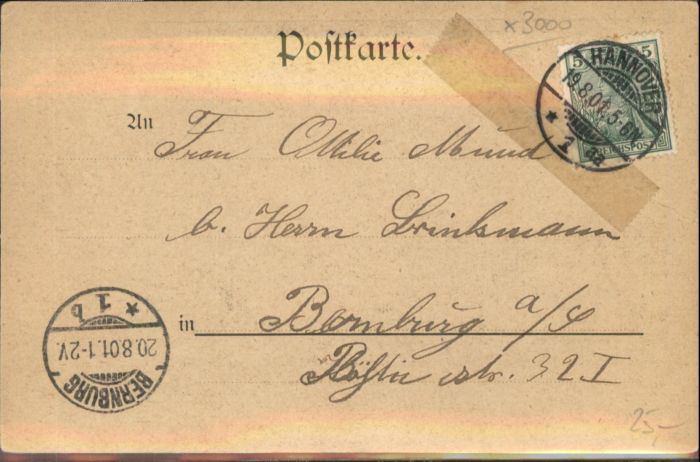 x3000
Postkarte.
5 5
REICHSPOST
HANNOVER
19.8.01. 5-6N.
* 1
An Frau Ottilie Mund
b. Herrn Brinkmann
in Bernburg a/S
str. 32 I
BERNBURG
20.8.01. 1-2V.
* 1 b
25,-